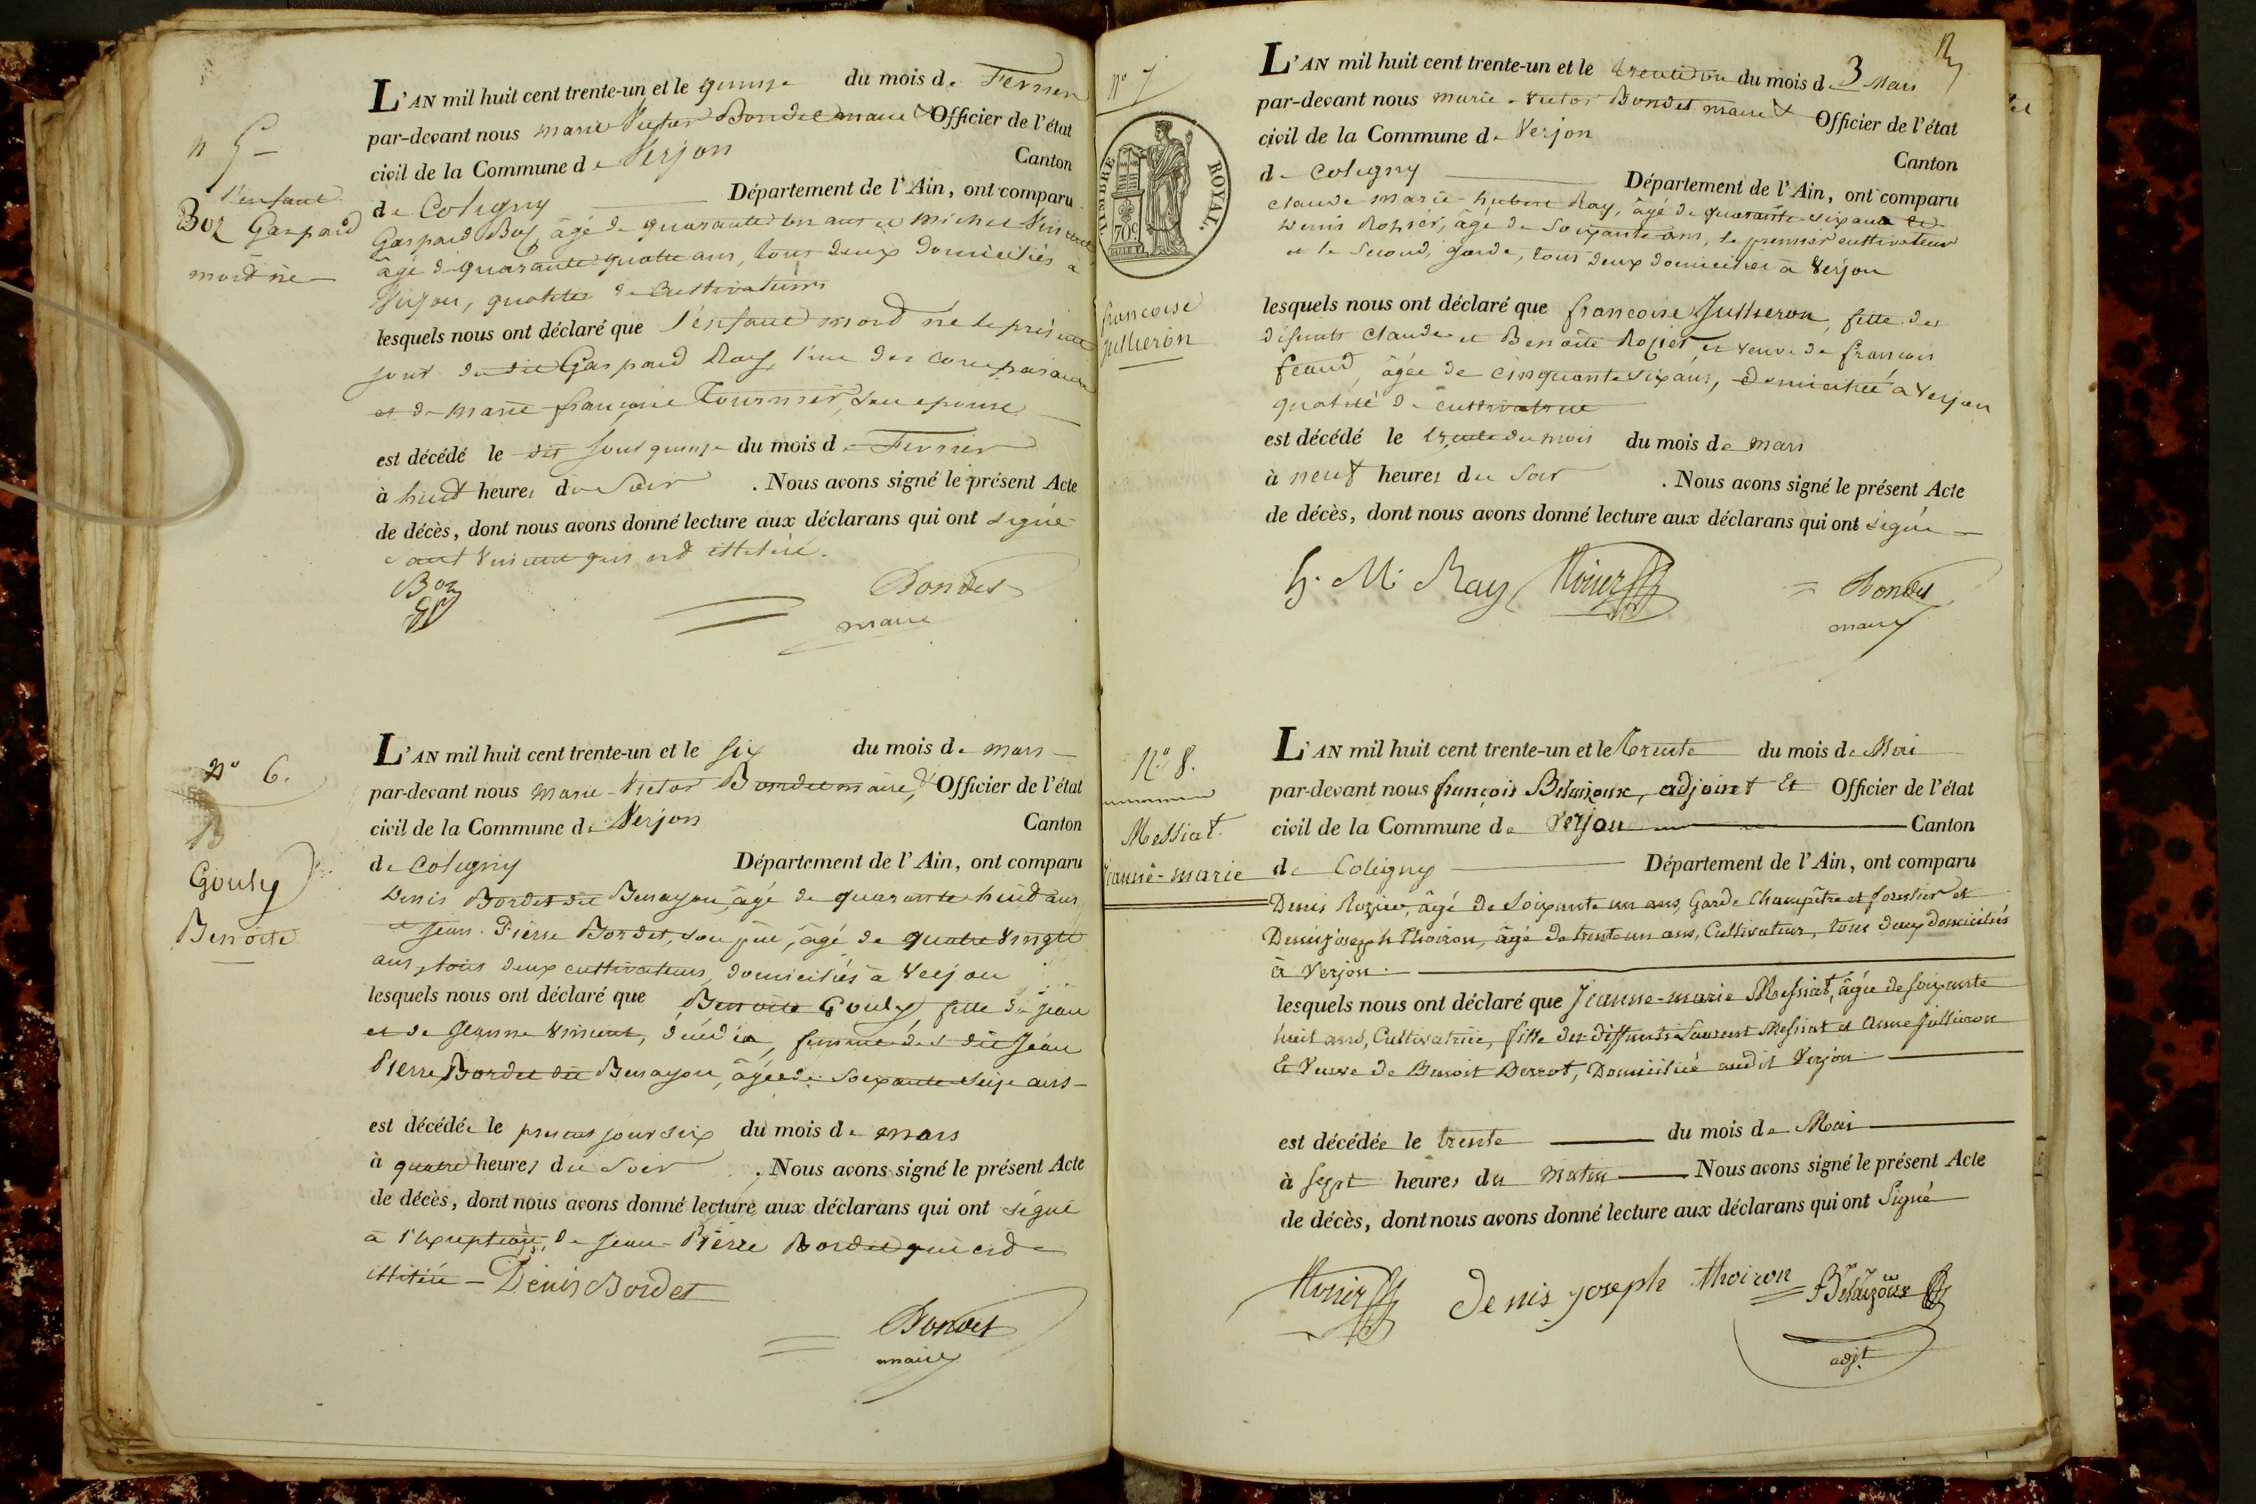 n 5
l'enfant
Boz Gaspard
mord né
L'AN mil huit cent trente-un et le quinze du mois de Fevrier
par-devant nous marie Victor Bondet maire & Officier de l'état
civil de la Commune de Verjon Canton
de Coligny Département de l'Ain, ont comparu
Gaspard Boz, âgé de quarante un ans et michel Vincent
âgé de quarante quatre ans, tous deux domiciliés à
Verjon, qualité de Cultivateurs
lesquels nous ont déclaré que l'enfant mord né le présent
jour du dit Gaspard Roy, l'un des comparans
et de marie françoise Tournier, son epouse
est décédé le dit jour quinze du mois de Fevrier
à huit heures du Soir . Nous avons signé le présent Acte
de décès, dont nous avons donné lecture aux déclarans qui ont signé
sauf Vincent qui est illitéré.
Boz
Bondet
maire
No 6.
Gouly
Benoite
L'AN mil huit cent trente-un et le six du mois de mars
par-devant nous marie-Victor Bondet maire, & Officier de l'état
civil de la Commune de Verjon Canton
de Coligny Département de l'Ain, ont comparu
Denis Bordet dit Benayou, âgé de quarante huit ans
et Jean-Pierre Bordet, son père, âgé de quatre vingts
ans, tous deux cultivateurs, domiciliés à Verjon
lesquels nous ont déclaré que Benoite Gouly fille de jean
et de Jeanne Vincent, femme du dit Jean
Pierre Bordet dit Benayou, âgée de soixante seize ans
est décédée le present jour six du mois de mars
à quatre heures du soir . Nous avons signé le présent Acte
de décès, dont nous avons donné lecture aux déclarans qui ont signé
à l'exception de Jean-Pierre Bordet qui est
illitéré - Denis Bordet
Bondet
maire
No 7
TIMBRE ROYAL.
70c
francoise
Jullieron
L'AN mil huit cent trente-un et le trente un du mois de Mars
par-devant nous marie-Victor Bondet maire & Officier de l'état
civil de la Commune de Verjon
Canton
de Coligny Département de l'Ain, ont comparu
Claude marie-hubert Ray, âgé de quarante-six ans et
Denis Rozier, âgé de soixante ans, le premier cultivateur
et le second, garde, tous deux domiciliés à Verjon
lesquels nous ont déclaré que francoise Jullieron, fille des
défunts Claude et Benoite Rozier et veuve de francois
feaud, âgée de cinquante six ans, domiciliée à Verjon
qualité de cultivatrice
est décédé le trente du mois du mois de mars
à neuf heures du soir . Nous avons signé le présent Acte
de décès, dont nous avons donné lecture aux déclarans qui ont signé
h. M. Ray Rozier Bondet
maire
No 8.
Messiat.
Jeanne-marie
L'AN mil huit cent trente-un et le trente du mois de Mai
par-devant nous françois Belaizoux, adjoint Et Officier de l'état
civil de la Commune de Verjon Canton
de Coligny Département de l'Ain, ont comparu
Denis Rozier, âgé de soixante un ans, Garde Champêtre et forestier et
Denis joseph Thoiron, âgé de trente un ans, Cultivateur, tous deux domiciliés
à Verjon.
lesquels nous ont déclaré que Jeanne-marie Messiat, âgée de soixante
huit ans, Cultivatrice, fille des deffunts Laurent Messiat et Anne Jullieron
Et Veuve de Benoit Berrot, Domiciliée audit Verjon
est décédée le trente du mois de Mai
à sept heures du matin Nous avons signé le présent Acte
de décès, dont nous avons donné lecture aux déclarans qui ont Signé
Rozier Denis joseph thoiron fs Belaizoux
adjt